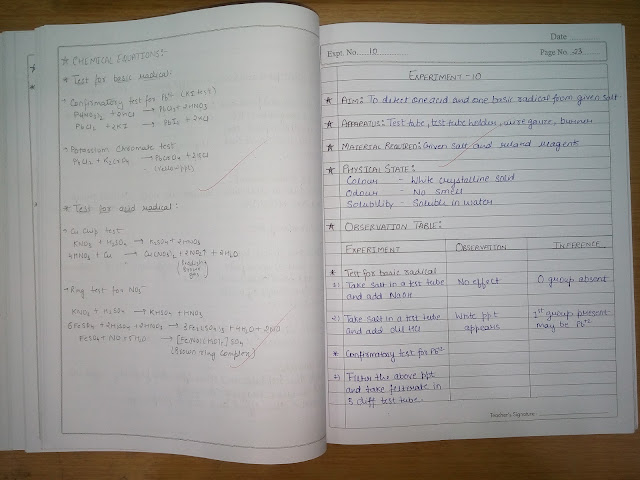 ★ CHEMICAL EQUATIONS:-
★ Test for basic radical:
• Confirmatory test for Pb²⁺ (KI test)
Pb(NO₃)₂ + 2HCl → PbCl₂ + 2HNO₃
PbCl₂ + 2KI → PbI₂ + 2KCl
• Potassium Chromate test
PbCl₂ + K₂CrO₄ → PbCrO₄ + 2KCl
(Yellow ppt)
★ Test for acid radical:
• Cu Chip test
KNO₃ + H₂SO₄ → K₂SO₄ + 2HNO₃
4HNO₃ + Cu → Cu(NO₃)₂ + 2NO₂↑ + 2H₂O
Brown
gas
• Ring test for NO₃⁻
KNO₃ + H₂SO₄ → KHSO₄ + HNO₃
6FeSO₄ + 3H₂SO₄ + 2HNO₃ → 3Fe₂(SO₄)₃ + 4H₂O + 2NO
FeSO₄ + NO + 5H₂O → [Fe(NO)(H₂O)₅]SO₄
(Brown ring complex)
Date
Expt. No. 10 Page No. 23
EXPERIMENT - 10
★ AIM: To detect one acid and one basic radical from given salt
★ APPARATUS: Test tube, test tube holder, wire gauze, burner
★ MATERIAL REQUIRED: Given salt and related reagents
★ PHYSICAL STATE:
Colour - White crystalline solid
Odour - No smell
Solubility - Soluble in water
★ OBSERVATION TABLE:
EXPERIMENT OBSERVATION INFERENCE
★ Test for basic radical
1) Take salt in a test tube No effect 0 group absent
and add NaOH
2) Take salt in a test tube White ppt 1ˢᵗ group present
and add dil HCl appears may be Pb²⁺
★ Confirmatory test for Pb²⁺
Filter the above ppt
and take filterate in
5 diff test tube.
Teacher's Signature: